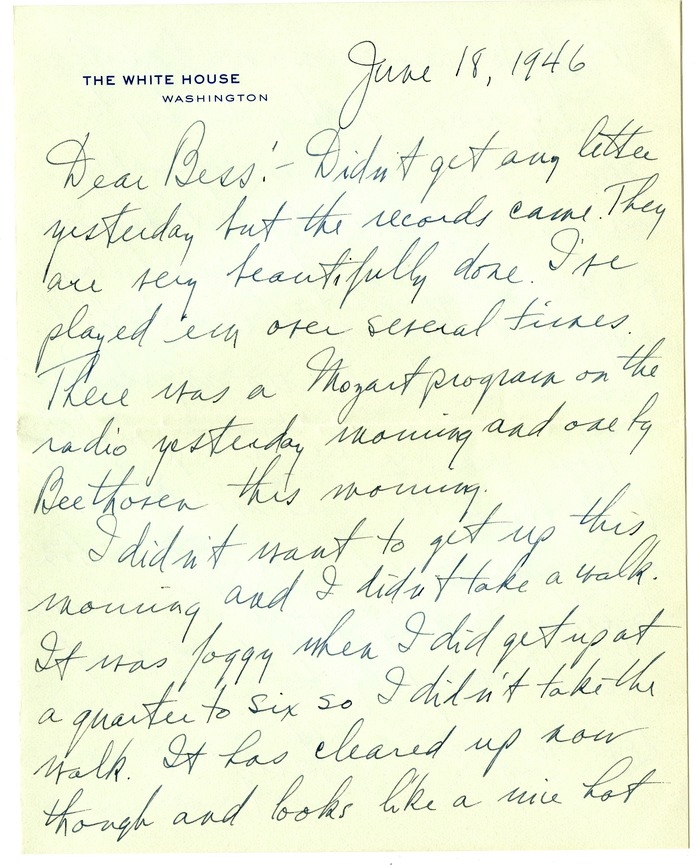 THE WHITE HOUSE
WASHINGTON
June 18, 1946
Dear Bess:- Didn't get any letter
yesterday but the records came. They
are very beautifully done. I've
played 'em over several times.
There was a Mozart program on the
radio yesterday morning and one by
Beethoven this morning.
I didn't want to get up this
morning and I didn't take a walk.
It was foggy when I did get up at
a quarter to six so I didn't take the
walk. It has cleared up now
though and looks like a nice hot